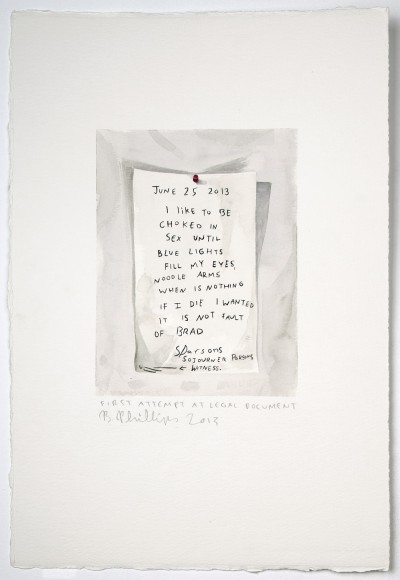 JUNE 25 2013
I LIKE TO BE
CHOKED IN
SEX UNTIL
BLUE LIGHTS
FILL MY EYES,
NOODLE ARMS
WHEN IS NOTHING
IF I DIE I WANTED
IT IS NOT FAULT
OF BRAD
SParsons
SOJOURNER PARSONS
← WITNESS.
FIRST ATTEMPT AT LEGAL DOCUMENT
B. Phillips 2013